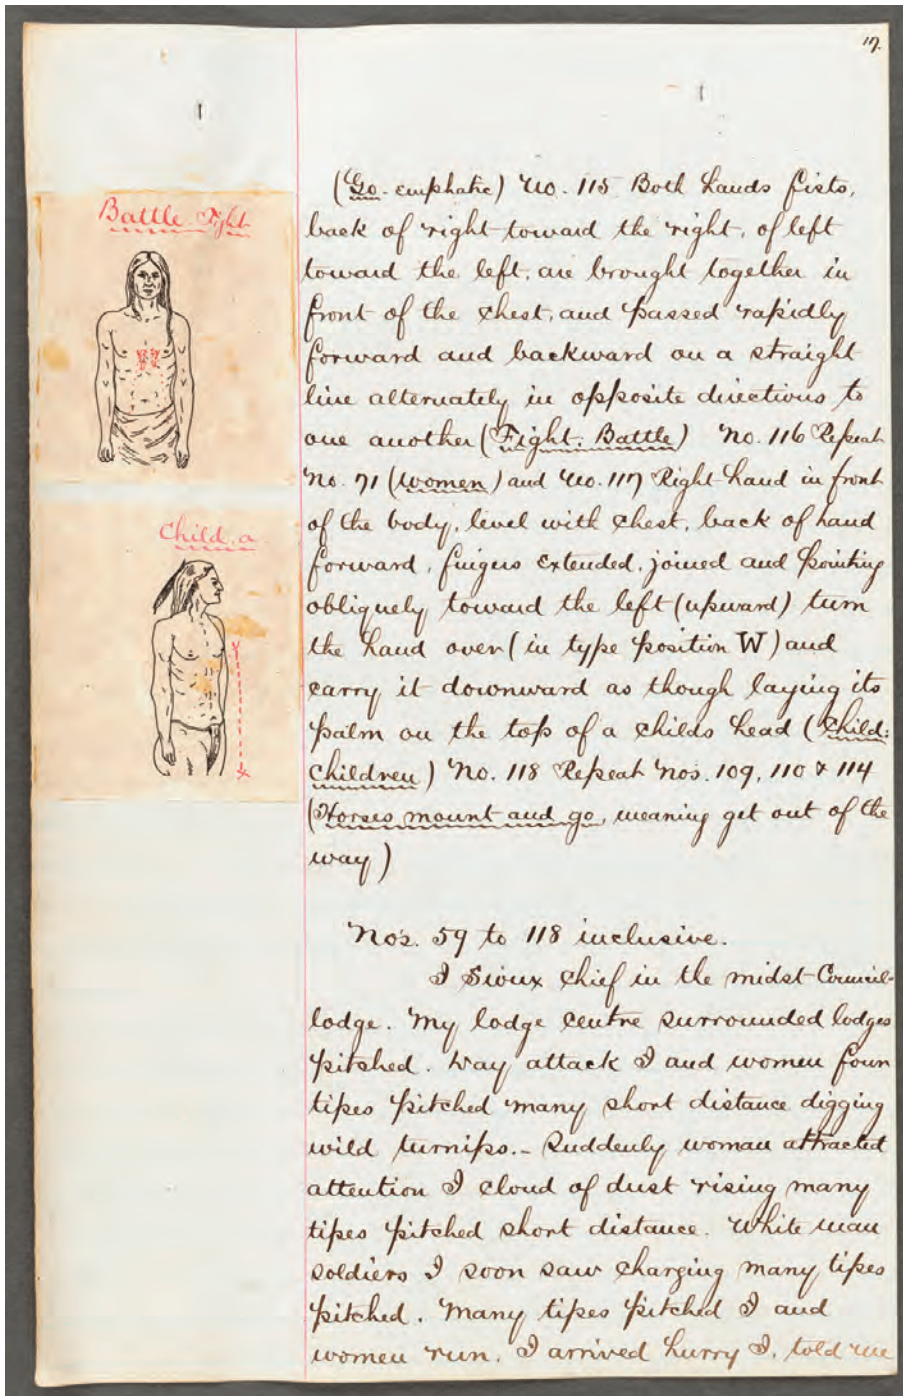 17.
Battle. Fight
Child. a
(Go- emphatic) No. 115 Both hands fists,
back of right toward the right, of left
toward the left, are brought together in
front of the chest, and passed rapidly
forward and backward on a straight
line alternately in opposite directions to
one another (Fight. Battle) No. 116 Repeat
No. 71 (women) and No. 117 Right hand in front
of the body, level with chest, back of hand
forward, fingers extended, joined and pointing
obliquely toward the left (upward) turn
the hand over (in type position W) and
carry it downward as though laying its
palm on the top of a childs head (Child:
Children) No. 118 Repeat Nos. 109, 110 & 114
(Horses mount and go, meaning get out of the
way)
Nos. 59 to 118 inclusive.
I Sioux Chief in the midst Council-
lodge. My lodge centre surrounded lodges
pitched. Day attack I and women four
tipes pitched many short distance digging
wild turnips.- Suddenly woman attracted
attention I cloud of dust rising many
tipes pitched short distance. White man
soldiers I soon saw charging many tipes
pitched. Many tipes pitched I and
women run. I arrived hurry I, told me